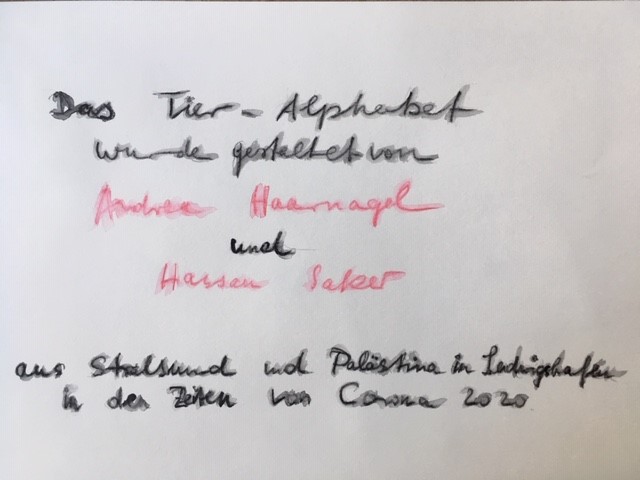 Das Tier-Alphabet
wurde gestaltet von
Andrea Haarnagel
und
Hassan Saker
aus Stralsund und Palästina in Ludwigshafen
in den Zeiten von Corona 2020